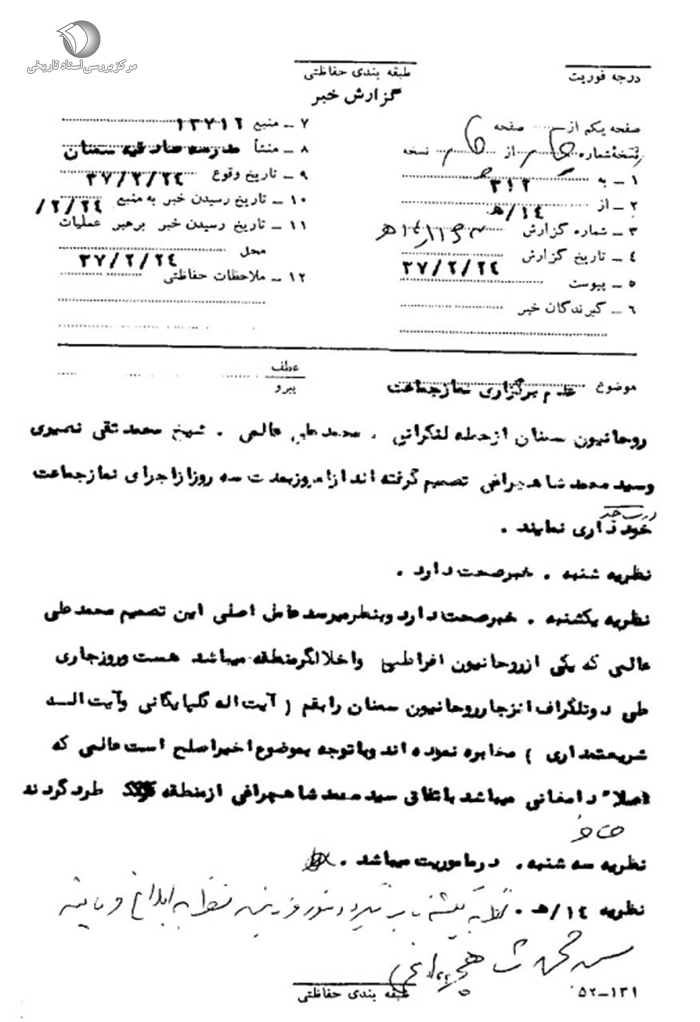 مرکز بررسی اسناد تاریخی
طبقه بندی حفاظتی
درجه فوریت
گزارش خبر
صفحه یکم از صفحه
نسخه شماره از نسخه
۱ – به ۳۱۲
۲ – از ۱۴/هـ
۳ – شماره گزارش
۴ – تاریخ گزارش ۳۷/۲/۲۴
۵ – پیوست
۶ – گیرندگان خبر
۷ – منبع ۱۳۷۱۲
۸ – منشأ مدرسه صادقیه سمنان
۹ – تاریخ وقوع ۳۷/۲/۲۴
۱۰ – تاریخ رسیدن خبر به منبع ۲/۲۴/
۱۱ – تاریخ رسیدن خبر برهبر عملیات
محل ۳۷/۲/۲۴
۱۲ – ملاحظات حفاظتی
عطف
پیرو
موضوع عدم برگزاری نماز جماعت
روحانیون سمنان از جمله لنکرانی ، محمد علی عالمی ، شیخ محمد تقی نصیری
و سید محمد شاهچراغی تصمیم گرفته اند از امروز بمدت سه روز از اجرای نماز جماعت
خودداری نمایند .
نظریه شنبه . خبر صحت دارد .
نظریه یکشنبه . خبر صحت دارد و بنظر میرسد عامل اصلی این تصمیم محمد علی
عالمی که یکی از روحانیون افراطی و اخلالگر منطقه میباشد هست و روز جاری
طی دو تلگراف انزجار روحانیون سمنان را بقم ( آیت اله گلپایگانی و آیت اله
شریعتمداری ) مخابره نموده اند و با توجه بموضوع اخیر اصلح است عالمی که
اصلا" دامغانی میباشد باتفاق سید محمد شاهچراغی از منطقه طرد گردند
نظریه سه شنبه . در ماموریت میباشد .
نظریه ۱۴/هـ .
طبقه بندی حفاظتی
۵۲–۱۳۱